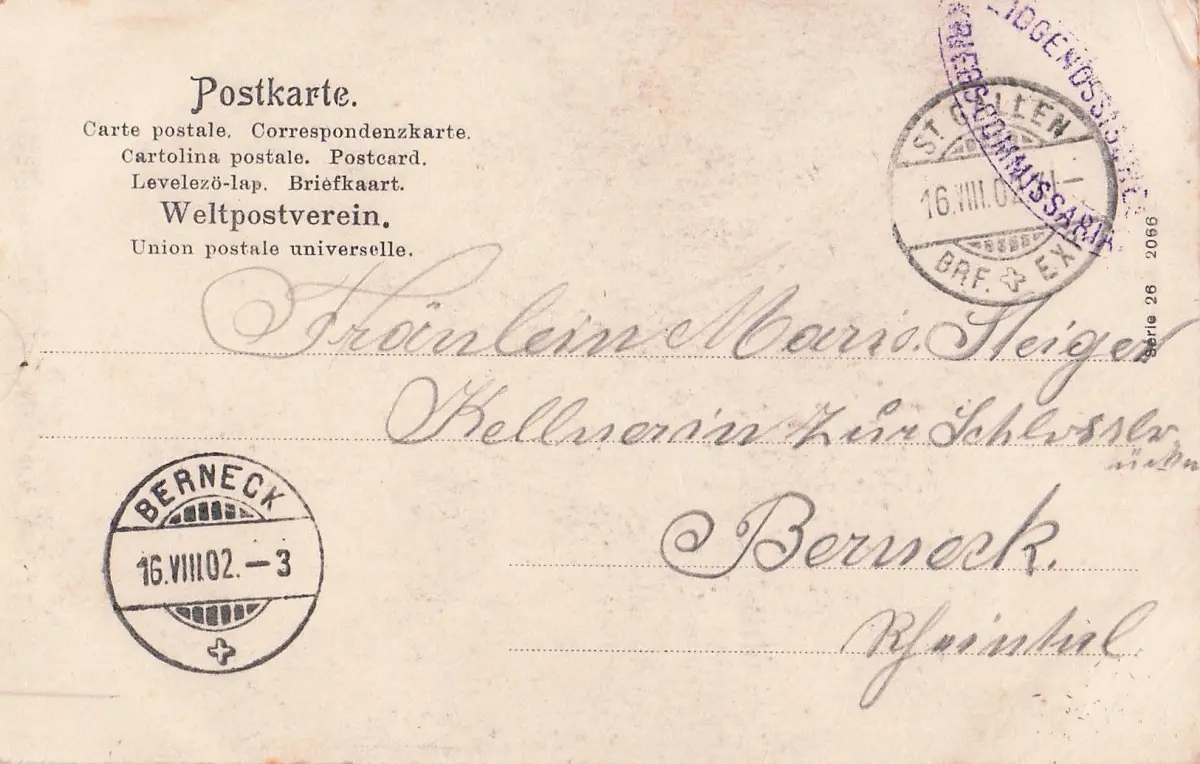 Postkarte.
Carte postale. Correspondenzkarte.
Cartolina postale. Postcard.
Levelezö-lap. Briefkaart.
Weltpostverein.
Union postale universelle.
KRIEGSCOMMISSARIAT
ST. GALLEN
16.VIII.02
BRF. EX
Serie 26 2066
Fräulein Marie Steiger
Kellnerin zur Schlossbr
ücke
Berneck.
Rheinthal
BERNECK
16.VIII.02.—3